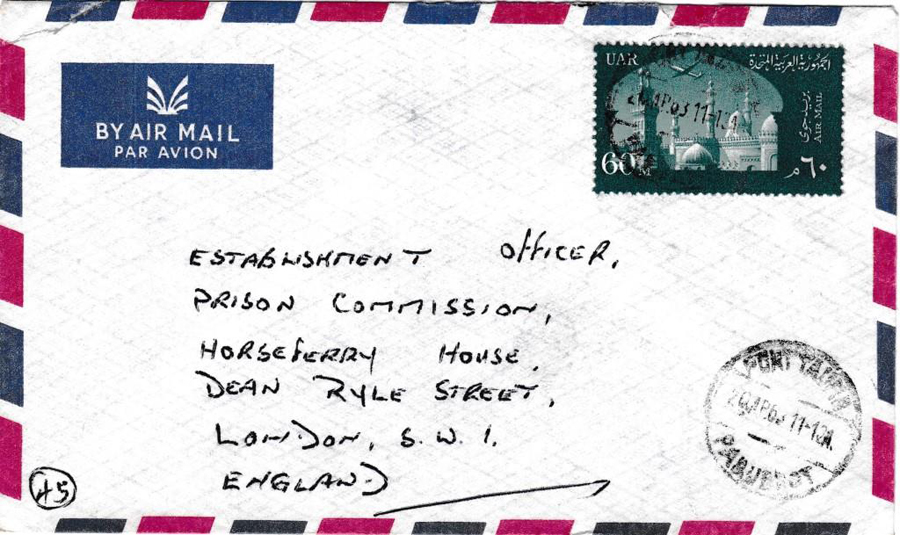 BY AIR MAIL
PAR AVION
UAR
الجمهورية العربية المتحدة
بريد جوى
AIR MAIL
60 M
٦٠ م
AP63 11-1
ESTABLISHMENT OFFICER,
PRISON COMMISSION,
HORSEFERRY HOUSE,
DEAN RYLE STREET,
LONDON, S.W.1.
ENGLAND
PORT TAUFIQ
26AP63 11-1
PAQUEBOT
45